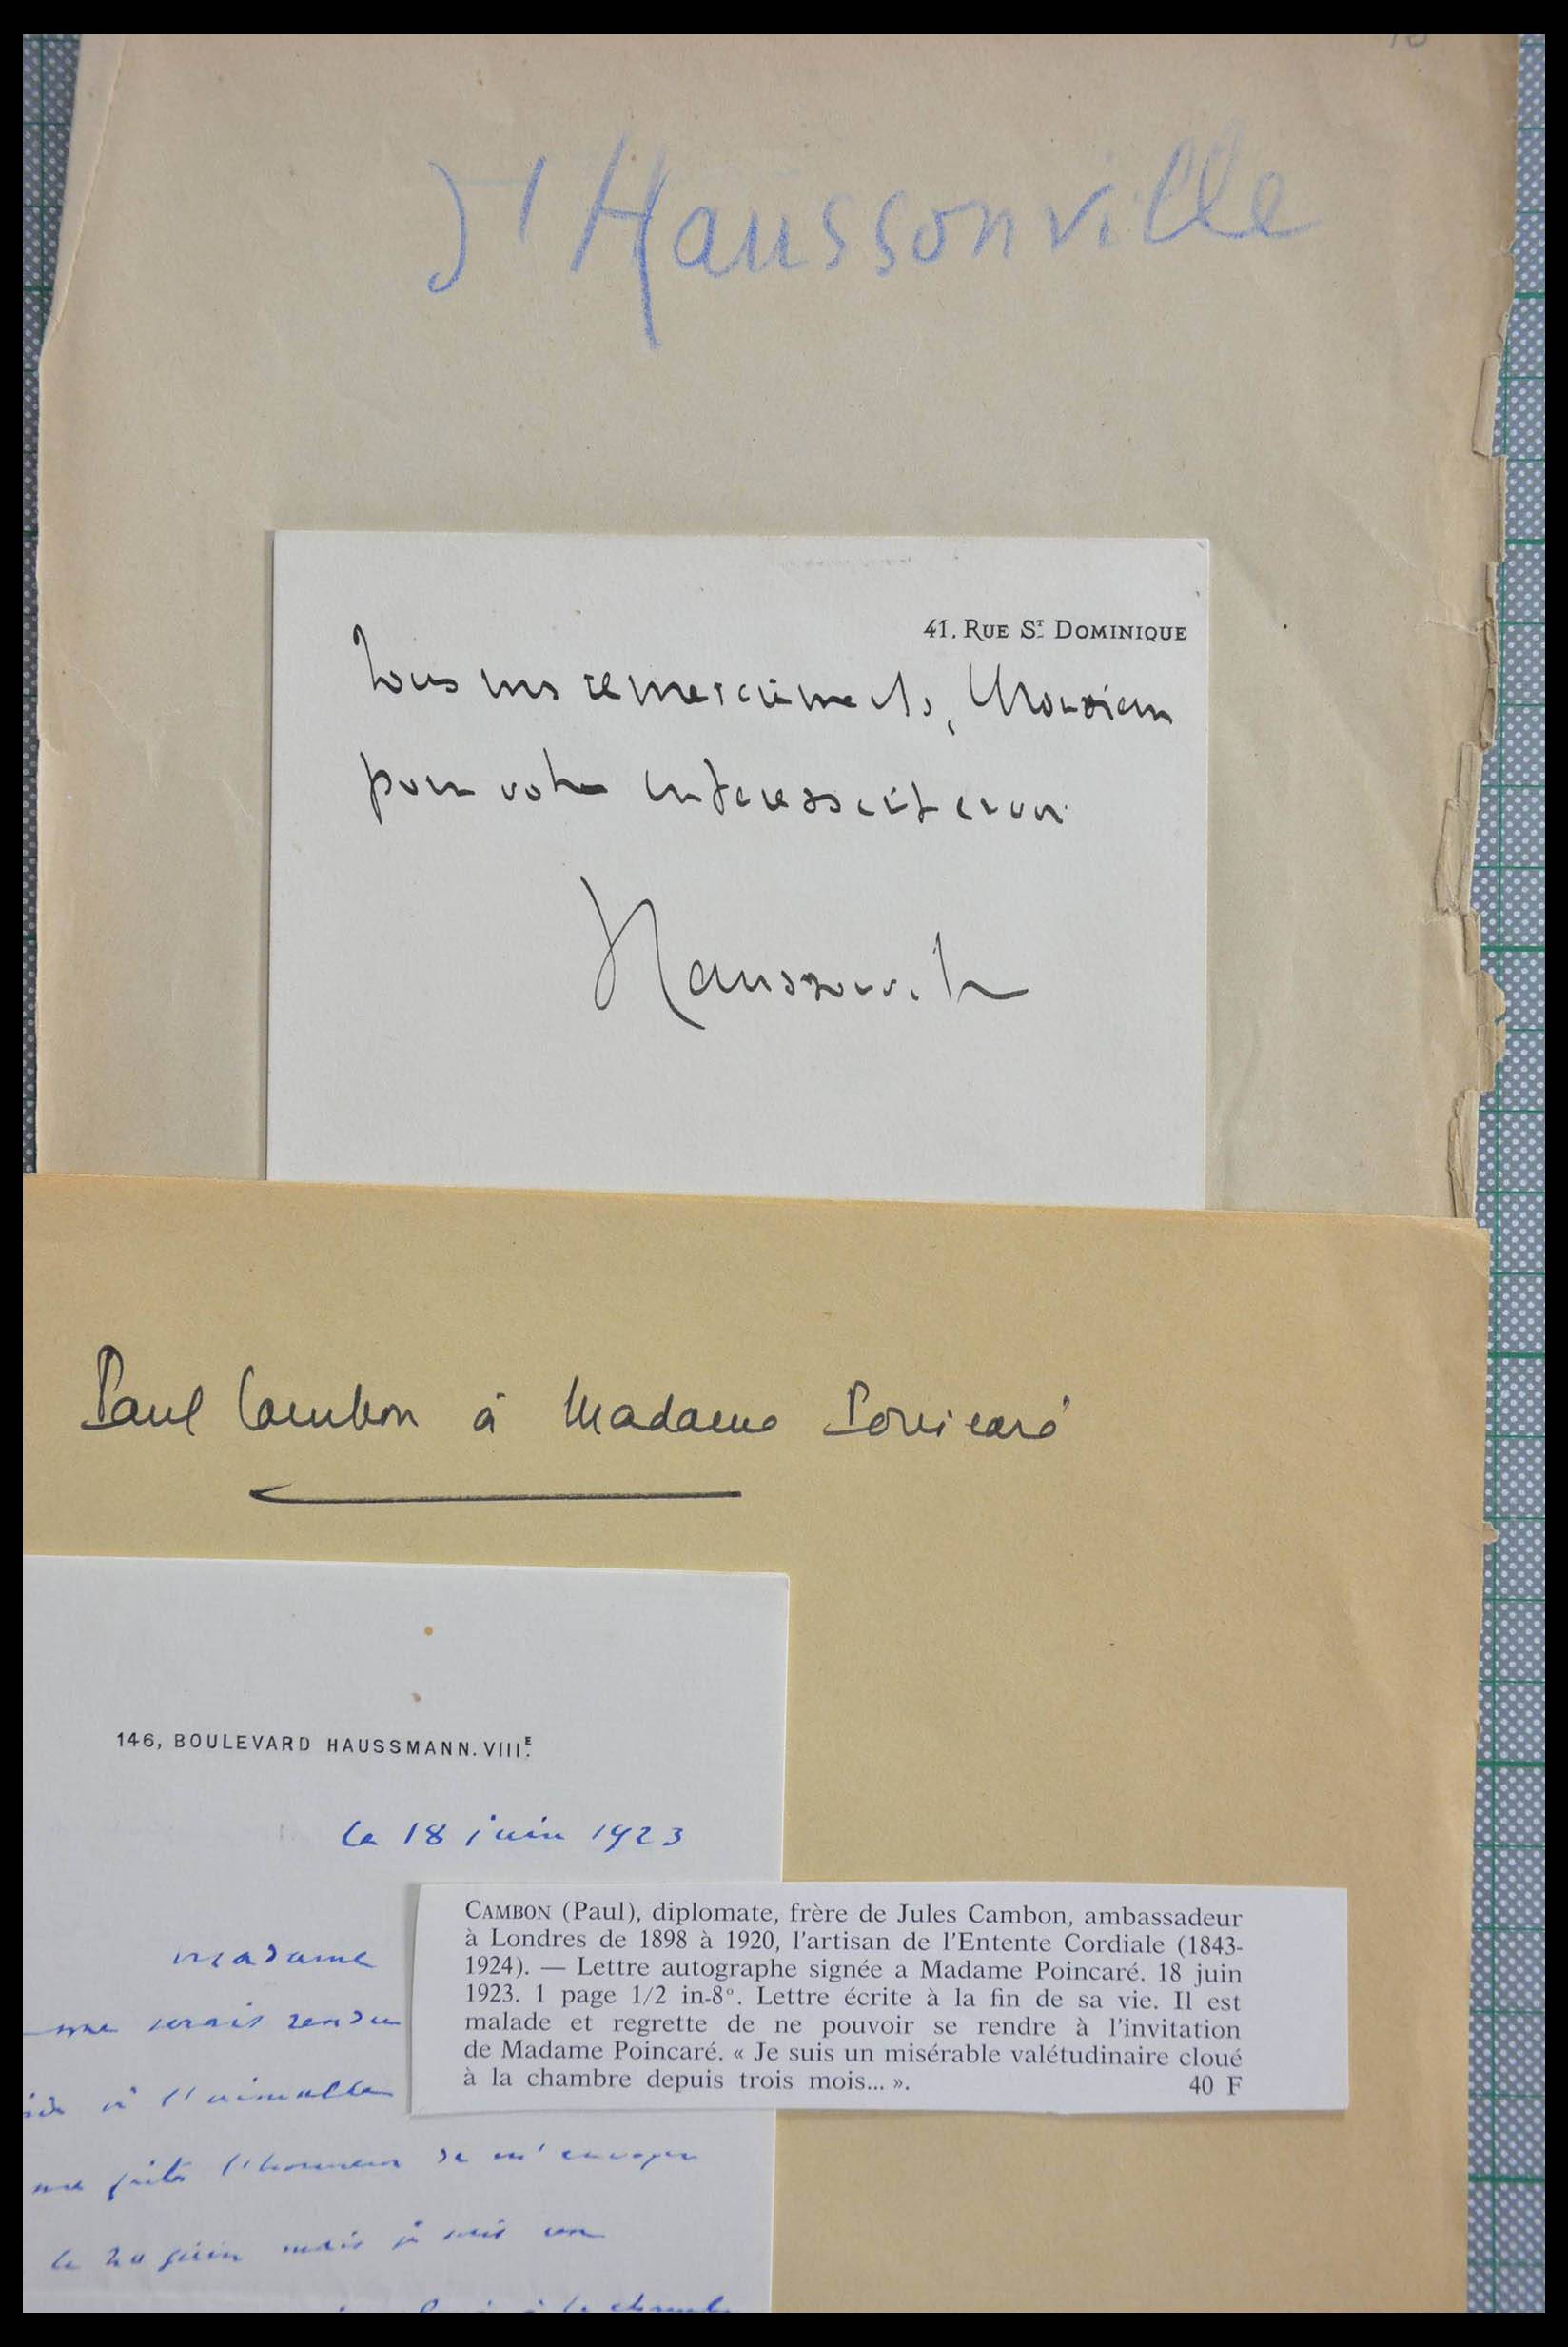 d'Haussonville
41. RUE ST DOMINIQUE
Tous mes remerciements, Monsieur
pour votre intéressant envoi
Haussonville
Paul Cambon à Madame Poincaré
146, BOULEVARD HAUSSMANN. VIIIE.
le 18 juin 1923
Madame
me serais rendu
à l'aimable
me faites l'honneur de m'envoyer
le 20 juin mais je suis un
à la chambre
CAMBON (Paul), diplomate, frère de Jules Cambon, ambassadeur
à Londres de 1898 à 1920, l'artisan de l'Entente Cordiale (1843-
1924). — Lettre autographe signée a Madame Poincaré. 18 juin
1923. 1 page 1/2 in-8°. Lettre écrite à la fin de sa vie. Il est
malade et regrette de ne pouvoir se rendre à l'invitation
de Madame Poincaré. « Je suis un misérable valétudinaire cloué
à la chambre depuis trois mois... ». 40 F